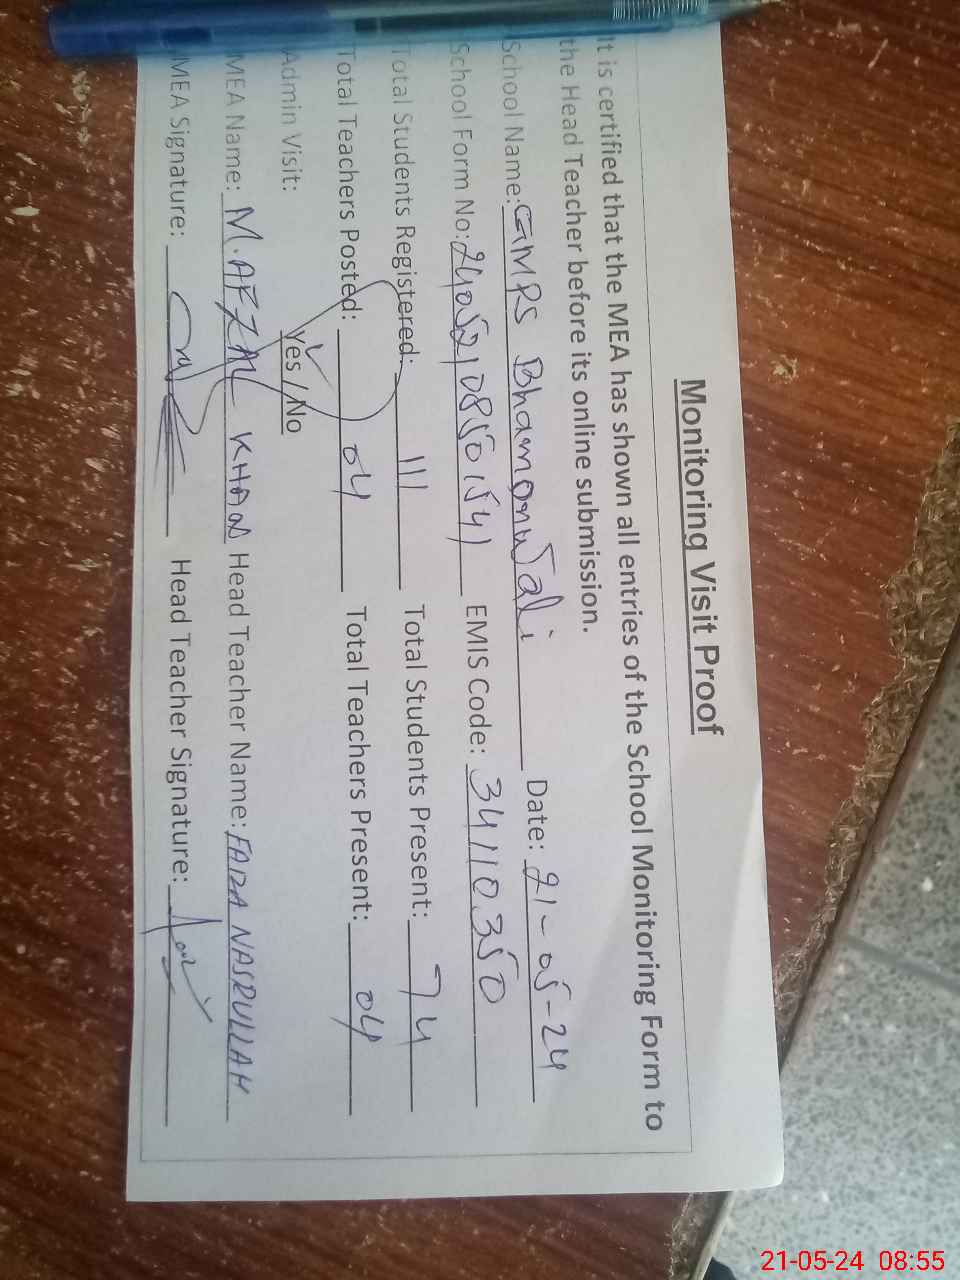 Monitoring Visit Proof
It is certified that the MEA has shown all entries of the School Monitoring Form to
the Head Teacher before its online submission.
School Name: GMPS Bhamonwali Date: 21-05-24
School Form No: 24052108501541 EMIS Code: 34110350
Total Students Registered: 111 Total Students Present: 74
Total Teachers Posted: 04 Total Teachers Present: 04
Admin Visit: Yes / No
MEA Name: M. AFZAL KHAN Head Teacher Name: FAIZA NASRULLAH
MEA Signature: Head Teacher Signature:
21-05-24 08:55